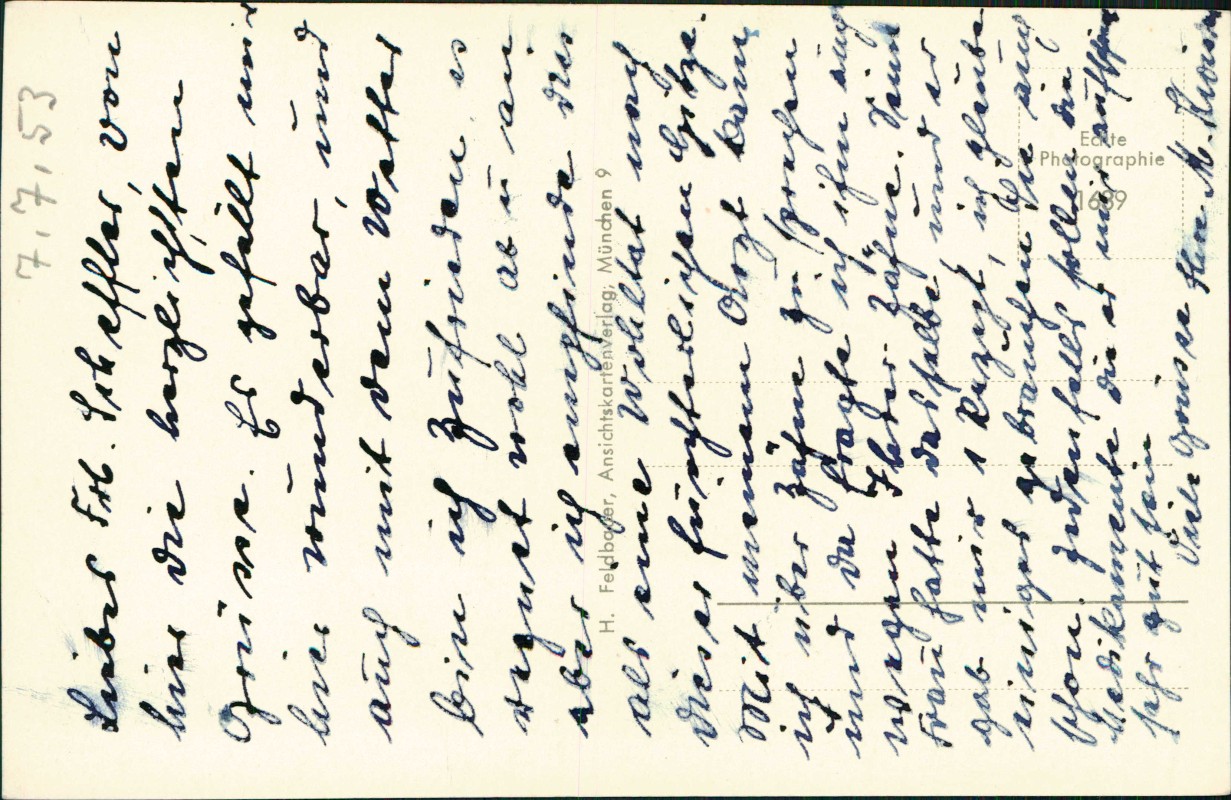 7.7.53
Liebes Frl. Scheffler, von
hier die herzlichsten
Grüsse. Es gefällt mir
hier wunderbar, und
auch mit dem Wetter
bin ich zufrieden. es
regnet wohl ab u. an
aber ich empfinde dies
als eine Wohltat nach
dieser fürchterlichen Hitze.
Mit meinem Arzt kam
ich über Zähne zu sprechen
und da fragte ich ihn auch
wegen Ihrer Zähne. Seine
Frau hatte dasselbe und er
gab mir 1 Rezept, ich glaube
einiges gebrauchen Sie auch
schon. Jedenfalls sollen die
Medikamente die er mir
sehr gut sein
Viele Grüsse Ihre M.
H. Feldbauer, Ansichtskartenverlag, München 9
Echte
Photographie
1689